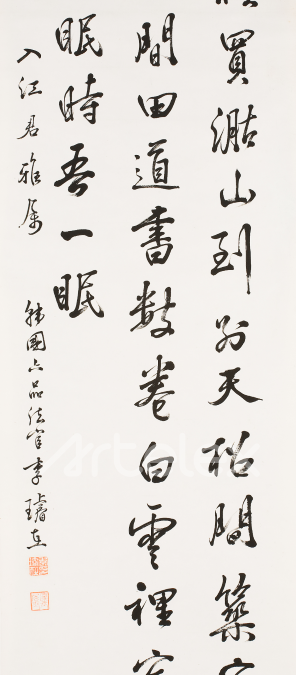 買瀦山到別天松間築
間田道書數卷白雲裡
眠時吾一眠
入江君雅屬
韓國六品法官李璿在